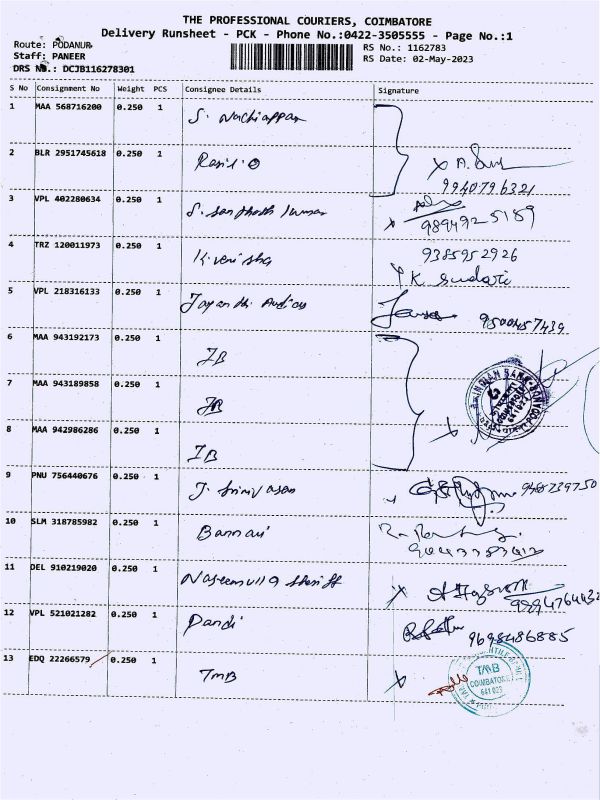 THE PROFESSIONAL COURIERS, COIMBATORE
Delivery Runsheet - PCK - Phone No.:0422-3505555 - Page No.:1
Route: PODANUR RS No.: 1162783
Staff: PANEER RS Date: 02-May-2023
DRS No.: DCJB116278301
S No Consignment No Weight PCS Consignee Details Signature
1 MAA 568716200 0.250 1 S. Nachiappan
2 BLR 2951745618 0.250 1
9940796321
3 VPL 402280634 0.250 1 S. Santhosh kumar
9894925189
4 TRZ 120011973 0.250 1 9385952926
K
5 VPL 218316133 0.250 1 Jayanthi
9500457439
6 MAA 943192173 0.250 1 IB
INDIAN BANK
7 MAA 943189858 0.250 1 IB
8 MAA 942986286 0.250 1 IB
9 PNU 756440676 0.250 1 J. Srinivasan
10 SLM 318785982 0.250 1 Bannari
11 DEL 910219020 0.250 1 Naseemulla Sheriff
9894764432
12 VPL 521021282 0.250 1 Pandi 9698486885
13 EDQ 22266579 0.250 1 TMB
TMB
COIMBATORE
641 023